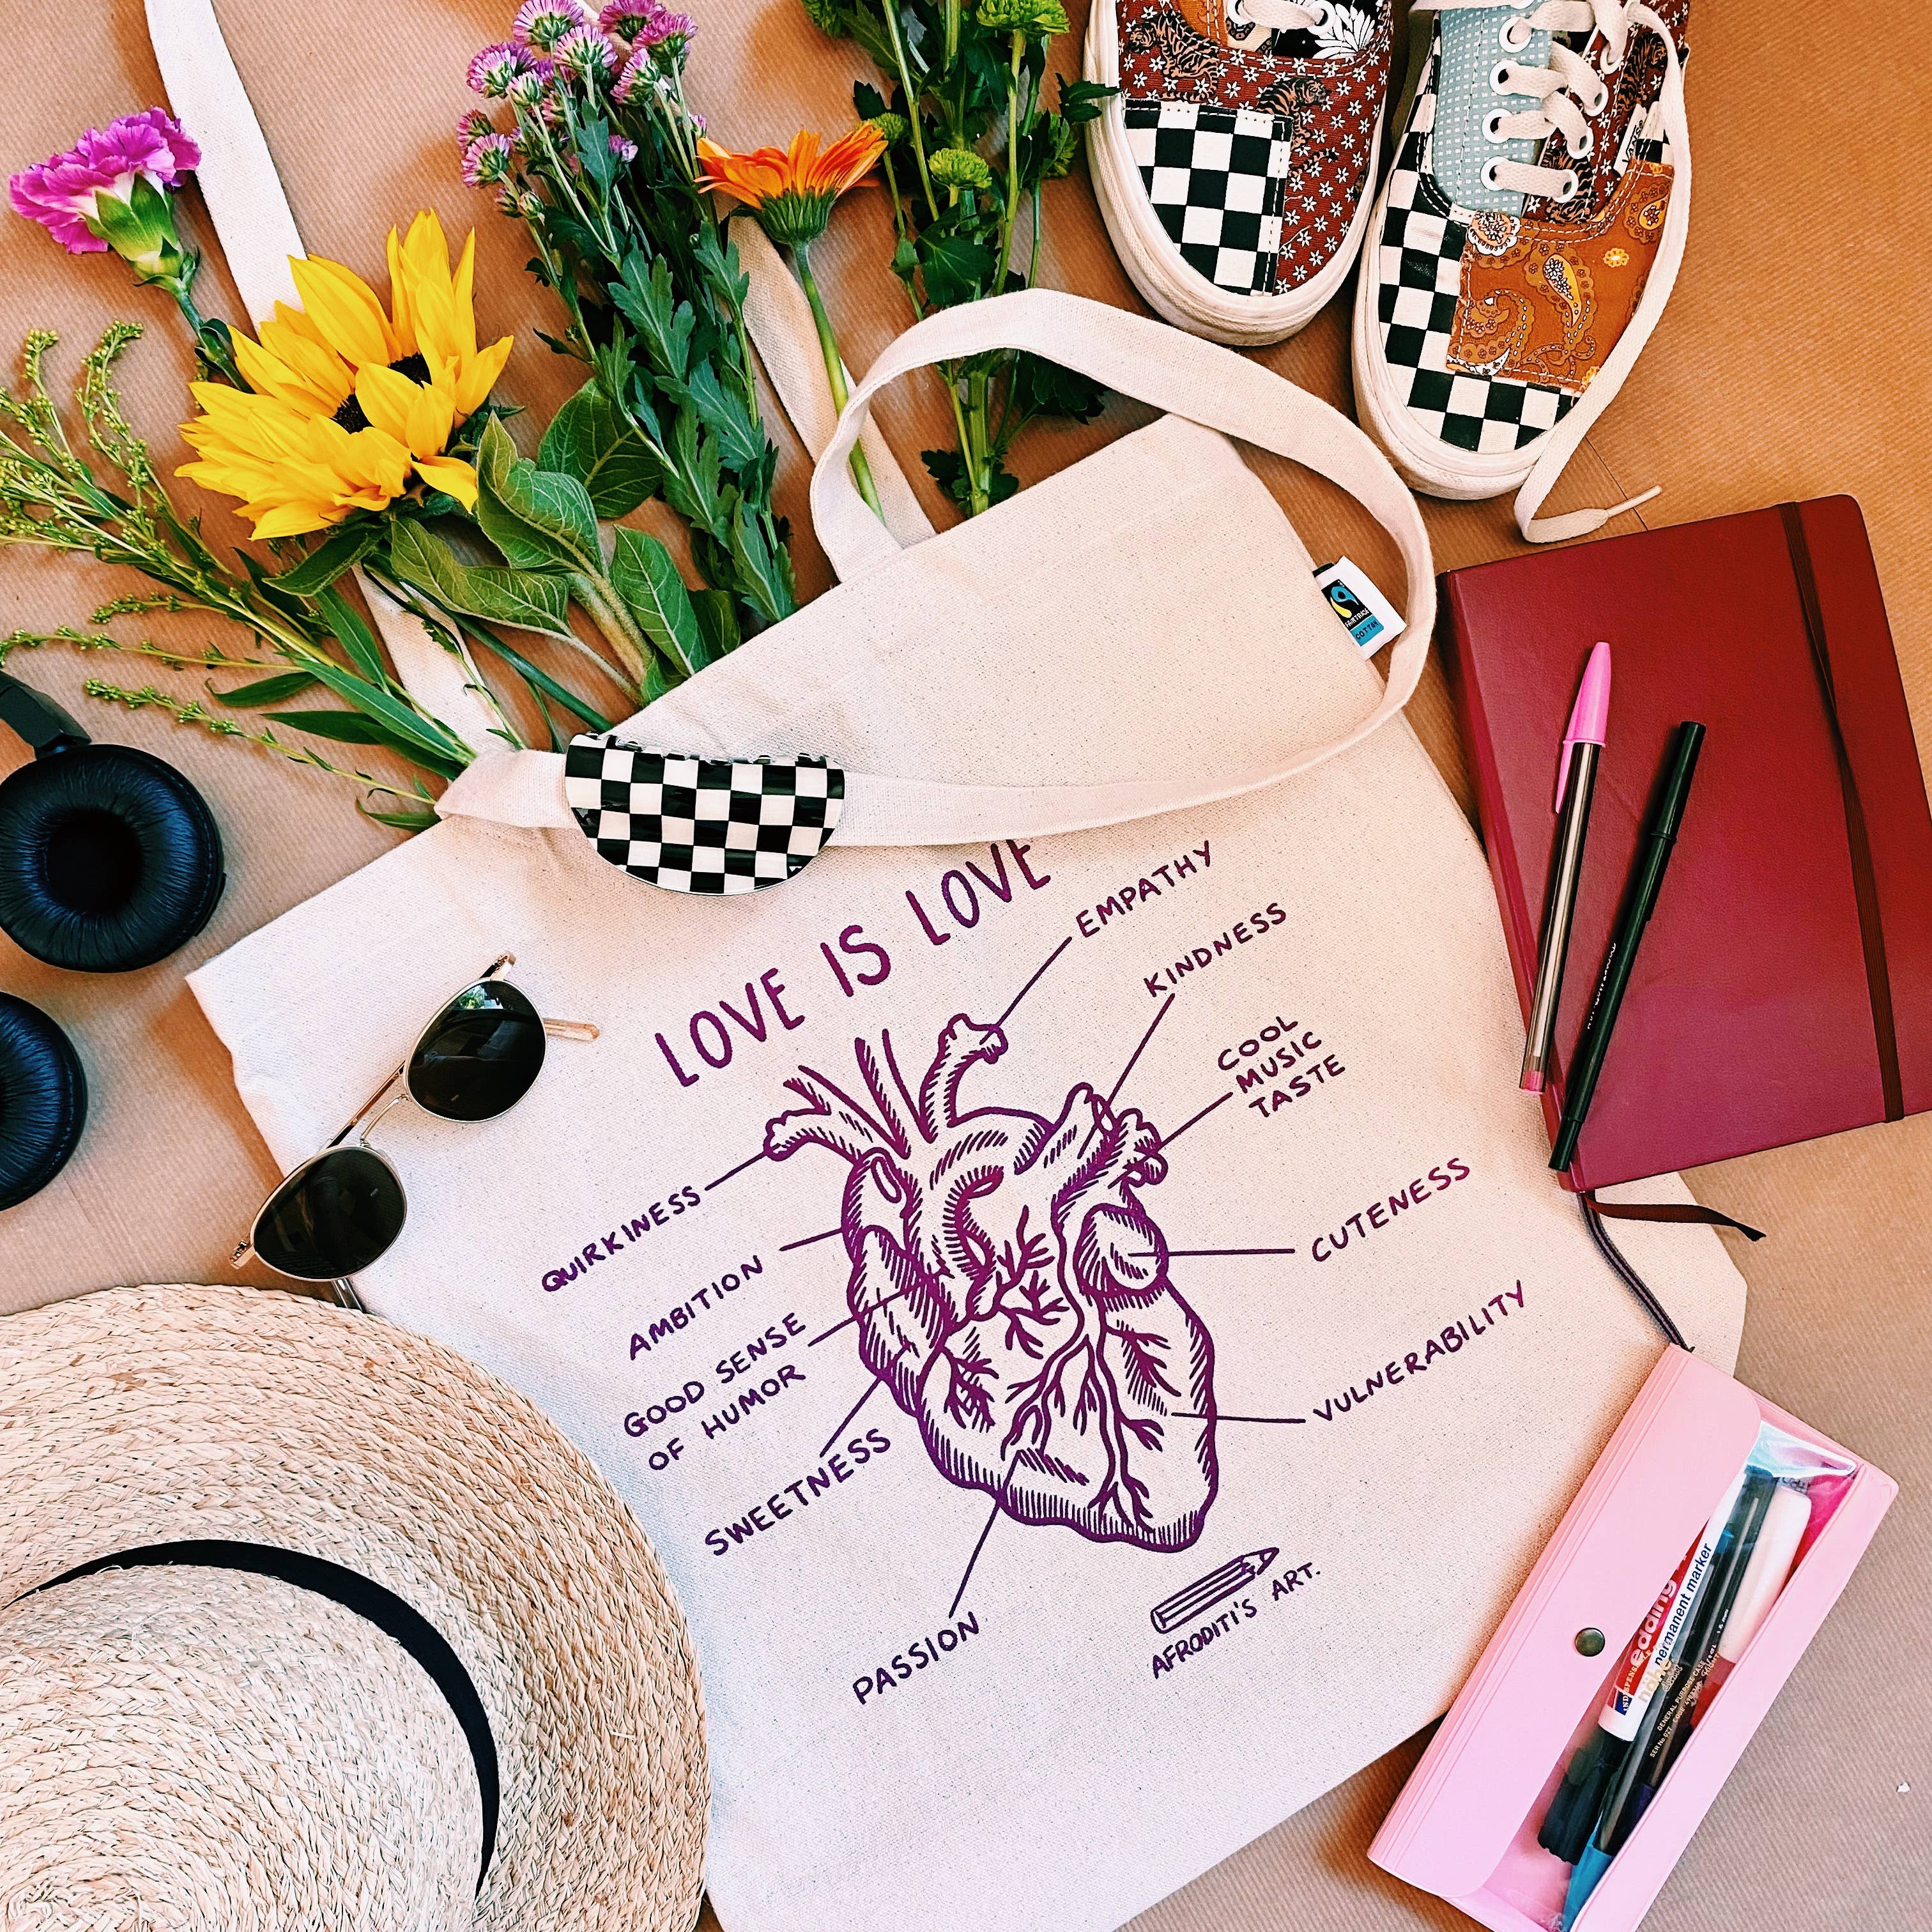 VANS
FAIRTRADE
COTTON
LOVE IS LOVE
EMPATHY
KINDNESS
COOL
MUSIC
TASTE
QUIRKINESS
AMBITION
GOOD SENSE
OF HUMOR
SWEETNESS
PASSION
CUTENESS
VULNERABILITY
AFRODITI'S ART.
edding
permanent marker